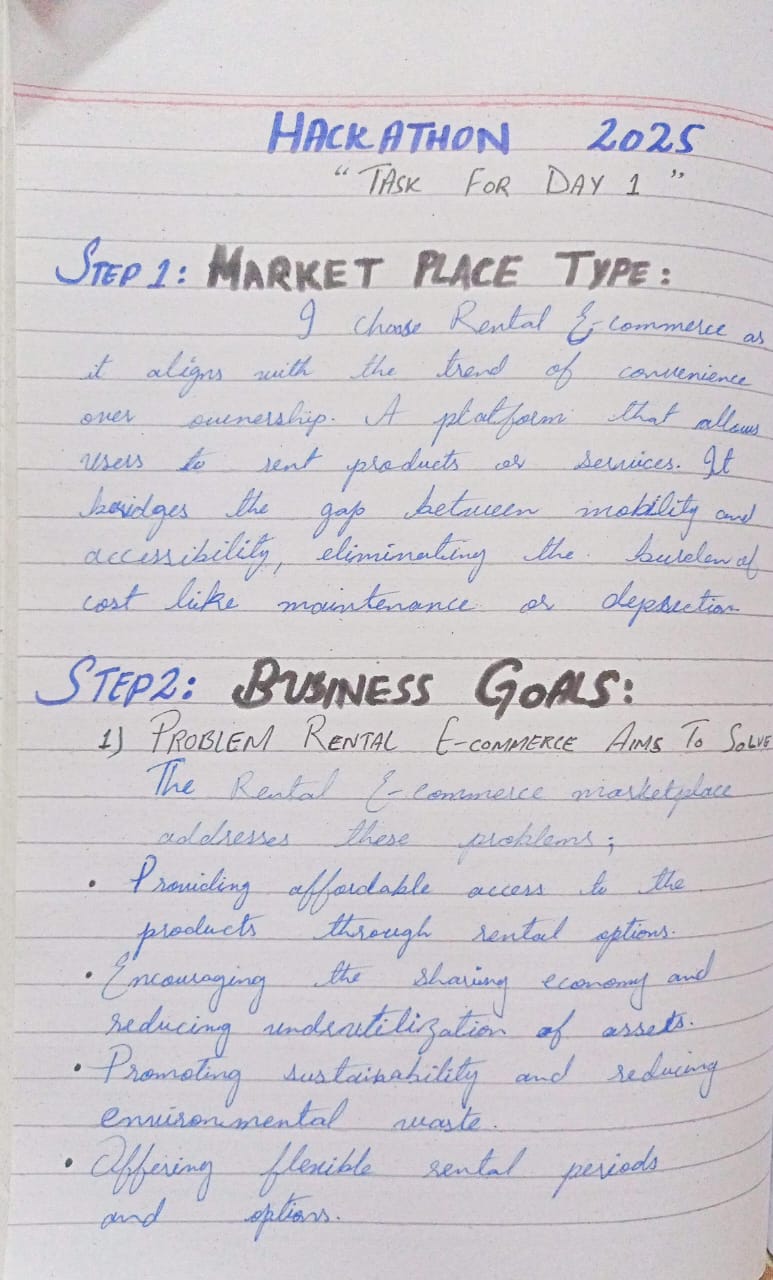 HACKATHON 2025
"TASK FOR DAY 1"
STEP 1: MARKET PLACE TYPE:
I choose Rental E-commerce as
it aligns with the trend of convenience
over ownership. A platform that allows
users to rent products or services. It
bridges the gap between mobility and
accessibility, eliminating the burden of
cost like maintenance or depriction
STEP2: BUSINESS GOALS:
1) PROBLEM RENTAL E-COMMERCE AIMS TO SOLVE
The Rental E-commerce marketplace
addresses these problems;
• Providing affordable access to the
products through rental options.
• Encouraging the sharing economy and
reducing underutilization of assets.
• Promoting sustainability and reducing
environmental waste.
• Offering flexible rental periods
and options.